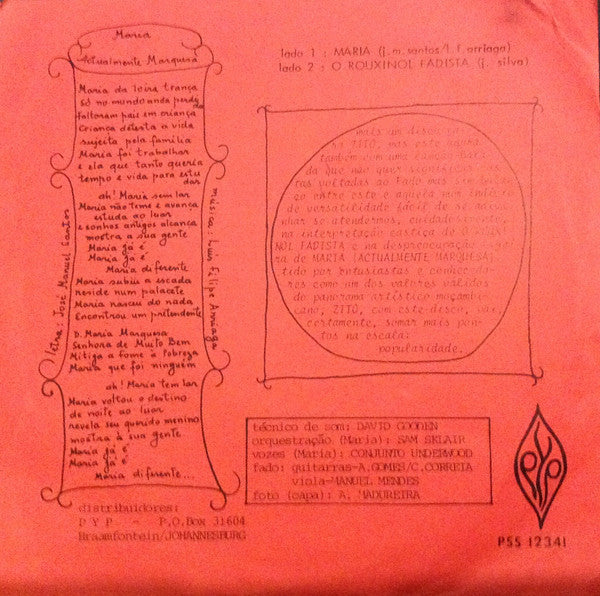 Maria
Actualmente Marquesa
Maria da loira trança
Só no mundo anda perdida
faltaram pais em criança
Criança detesta a vida
sujeita pela família
Maria foi trabalhar
e ela que tanto queria
tempo e vida para estudar
ah! Maria sem lar
Maria não teme e avança
estuda ao luar
e sonhos antigos alcança
mostra a sua gente
Maria já é
Maria já é
Maria diferente
Maria subiu a escada
reside num palacete
Maria nasceu do nada
Encontrou um pretendente
D. Maria Marquesa
Senhora de Muito Bem
Mitiga a fome à Pobreza
Maria que foi ninguém
ah! Maria tem lar
Maria voltou o destino
de noite ao luar
revela seu querido menino
mostra à sua gente
Maria já é
Maria já é
Maria diferente...
letra: José Manuel Santos
música: Luis Felipe Arriaga
distribuidores:
PYP - P.O.Box 31604
Braamfontein/JOHANNESBURG
lado 1 : MARIA (j.m.santos/l.f.arriaga)
lado 2 : O ROUXINOL FADISTA (j. silva)
mais um disco
ZITO, mas
também com uma canção
da que não quer significar
tas voltadas ao Fado mas
ção entre este e aquela
de versatilidade fácil de
nhar se atendermos, cuidados
na interpretação castiça de
NOL FADISTA e na despreocupação
ra de MARIA (ACTUALMENTE MARQUESA)
tido por entusiastas e conhecedo
res como um dos valores válidos
do panorama artístico moçambi
cano, ZITO, com este disco, vai
certamente, somar mais pon
tos na escala:
popularidade.
técnico de som: DAVID GOODEN
orquestração (Maria): SAM SKLAIR
vozes (Maria): CONJUNTO UNDERWOOD
fado: guitarras-A.GOMES/C.CORREIA
viola-MANUEL MENDES
foto (capa): A. MADUREIRA
PYP
PSS 12341